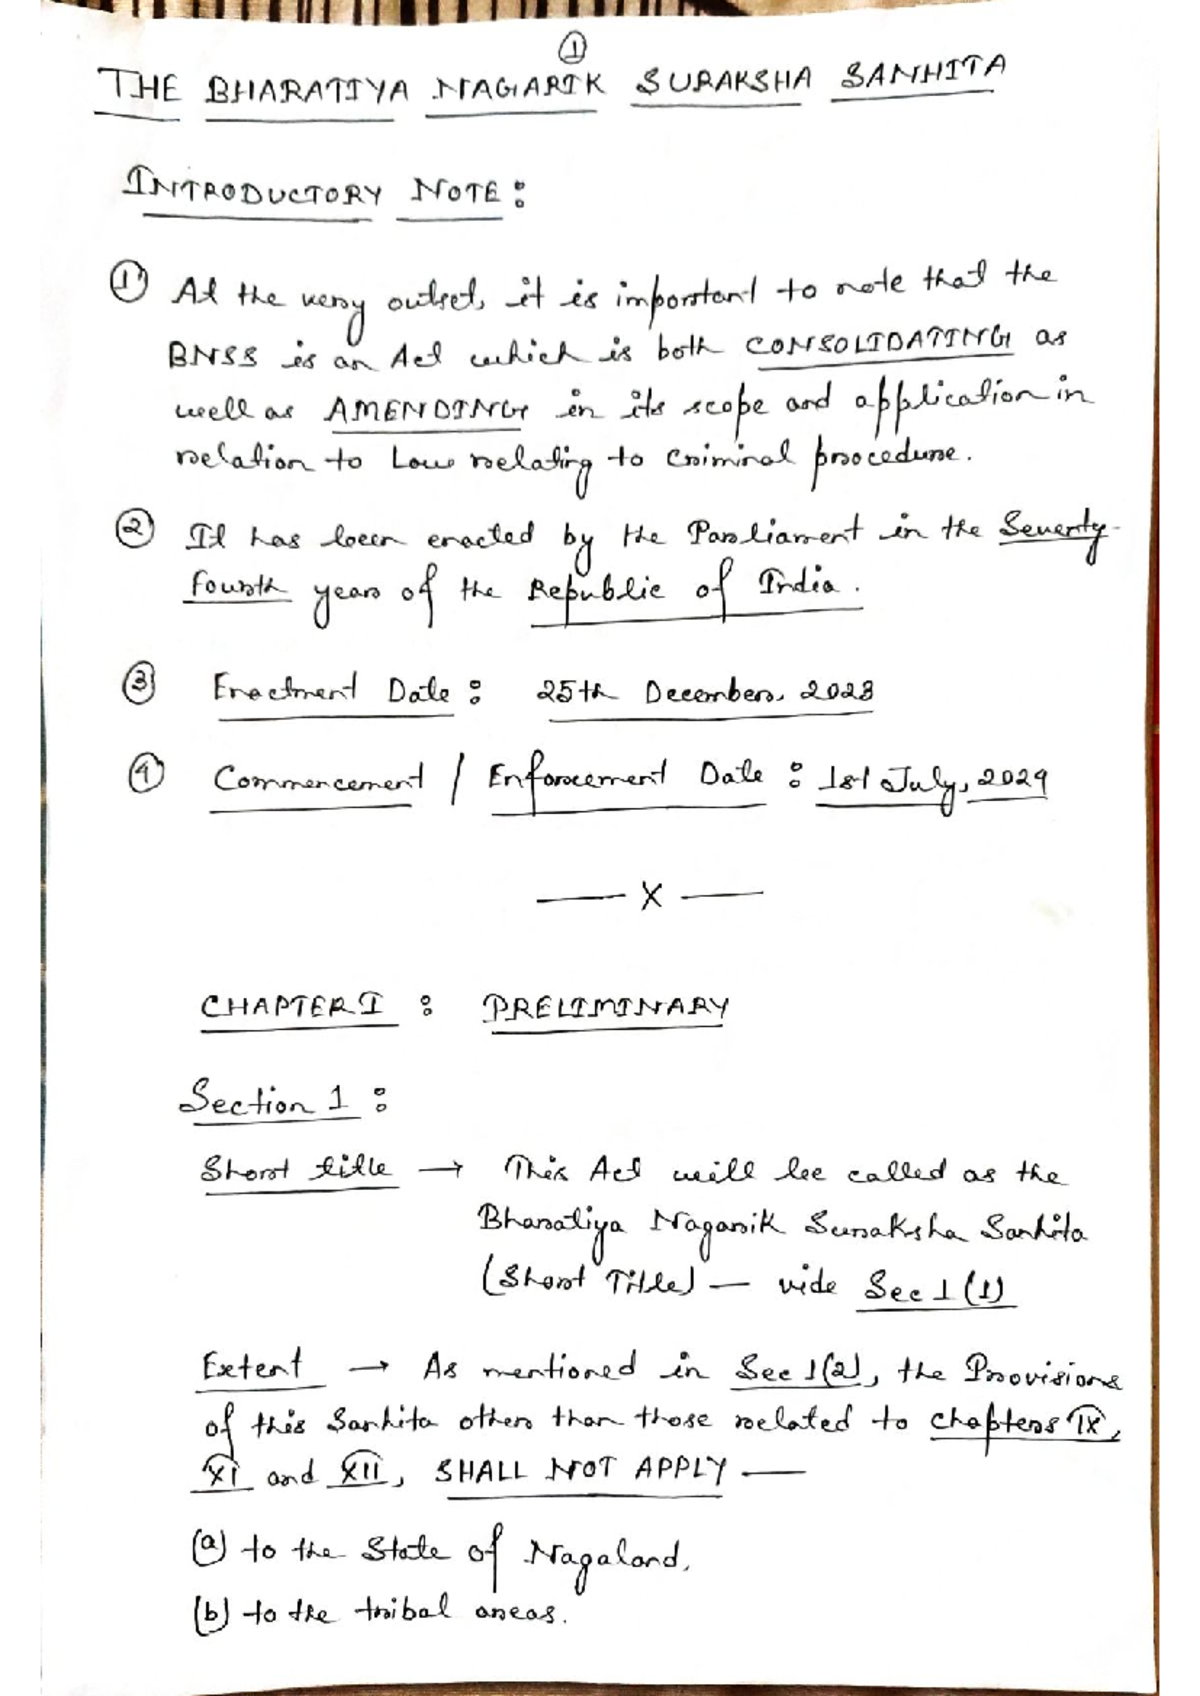 ①
THE BHARATIYA NAGARIK SURAKSHA SANHITA
INTRODUCTORY NOTE :
① At the very outset, it is important to note that the
BNSS is an Act which is both CONSOLIDATING as
well as AMENDING in its scope and application in
relation to Law relating to criminal procedure.
② It has been enacted by the Parliament in the Seventy-
fourth year of the Republic of India.
③ Enactment Date : 25th December, 2023
④ Commencement / Enforcement Date : 1st July, 2024
— X —
CHAPTER I : PRELIMINARY
Section 1 :
Short title → This Act will be called as the
Bharatiya Nagarik Suraksha Sanhita
(Short Title) — vide Sec 1(1)
Extent → As mentioned in Sec 1(2), the Provisions
of this Sanhita other than those related to chapters IX,
XI and XII, SHALL NOT APPLY —
(a) to the State of Nagaland,
(b) to the tribal areas.